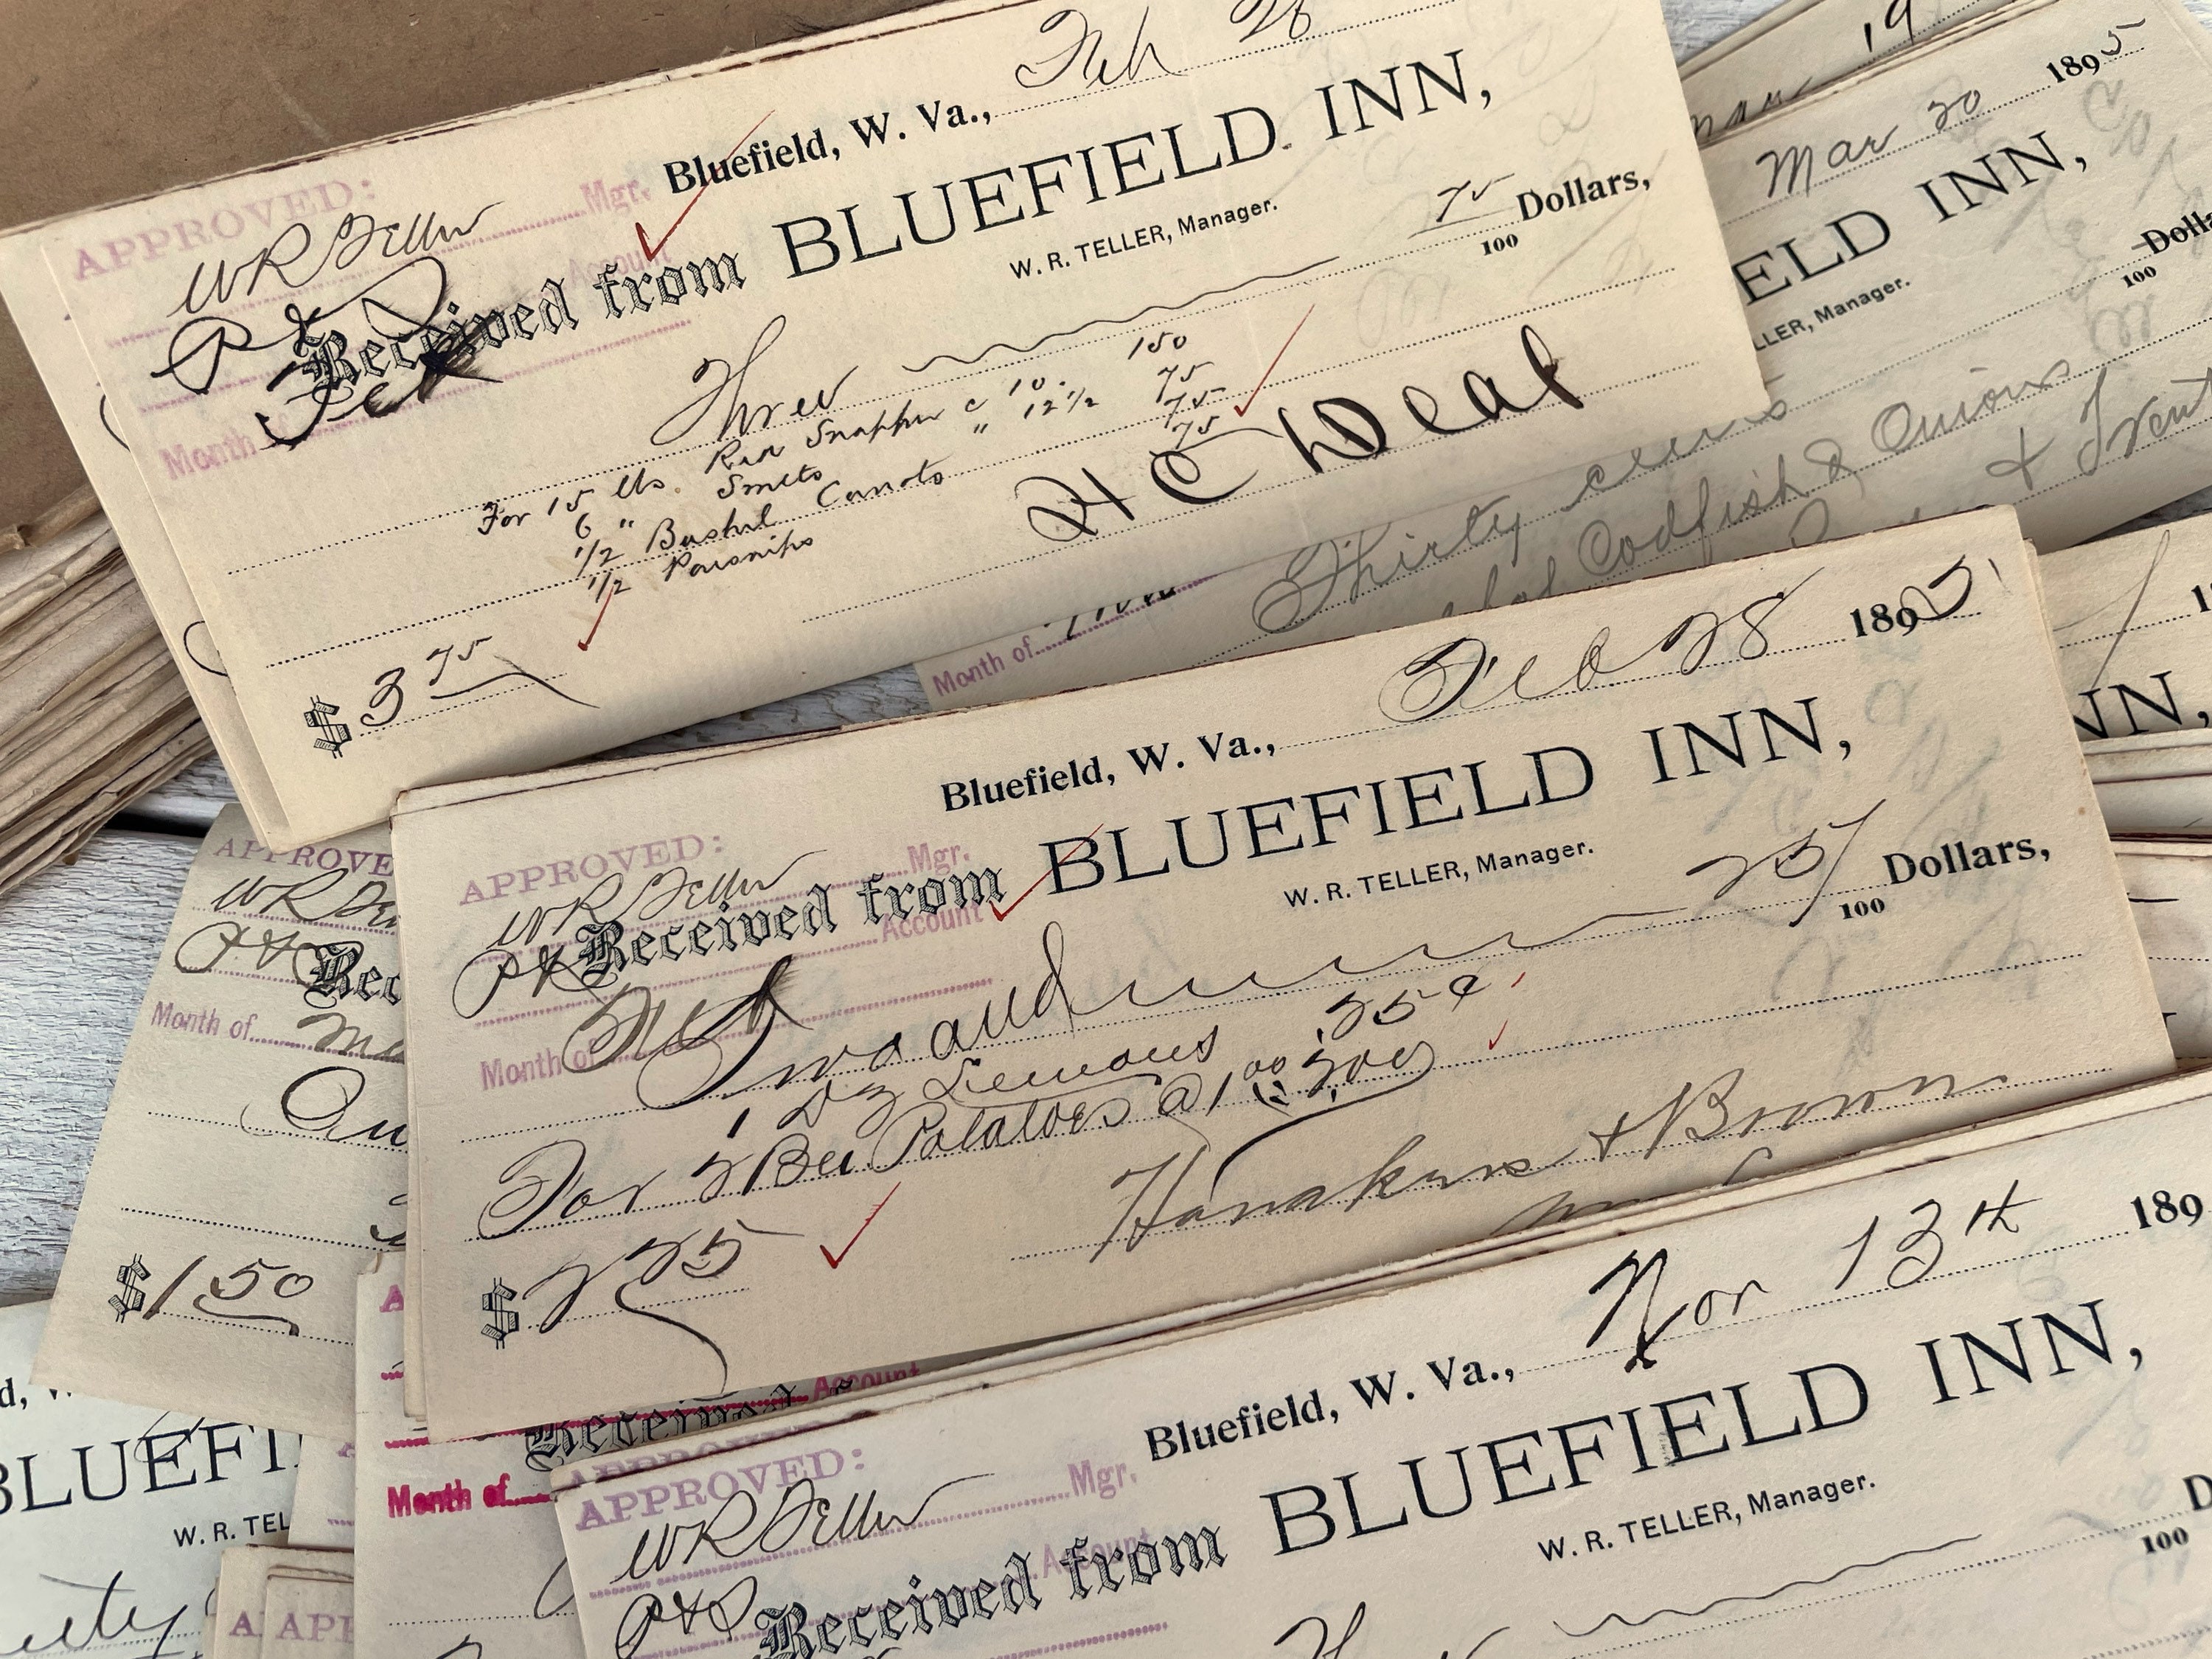 Feb 26
Bluefield, W. Va.,
APPROVED:
Mgr.
WR Teller
Account
Received from BLUEFIELD INN,
W. R. TELLER, Manager.
Month of Feb
Three 75/100 Dollars,
For 15 lbs. Red Snapper @ 10. 150
6 " Smelts " 12 1/2 75
1/2 Bushel Carrots 75
1/2 Parsnips 75
H C Deal
$ 3 75
19
Mar 30 1895
ELD INN,
LLER, Manager.
100 Dolla
Thirty cents
Codfish & Onions
&
Month of
Feb 28 1895
Bluefield, W. Va.,
APPROVED:
Mgr.
WR Teller
Account
Received from BLUEFIELD INN,
W. R. TELLER, Manager.
Month of Feb
Two and 25/100 Dollars,
1 Dz Lemons .25c
For 2 Bu Potatoes @ 1 00 2 00
Hawkins & Brown
$ 2 25
NN,
APPROVE
WR
Rec
Month of
$ 1 50
Account
Received
Month of
Nov 13th 189
Bluefield, W. Va.,
APPROVED:
Mgr.
WR Teller
Account
P&S
Received from BLUEFIELD INN,
W. R. TELLER, Manager.
100 D
BLUEFI
W. R. TEL
A
API